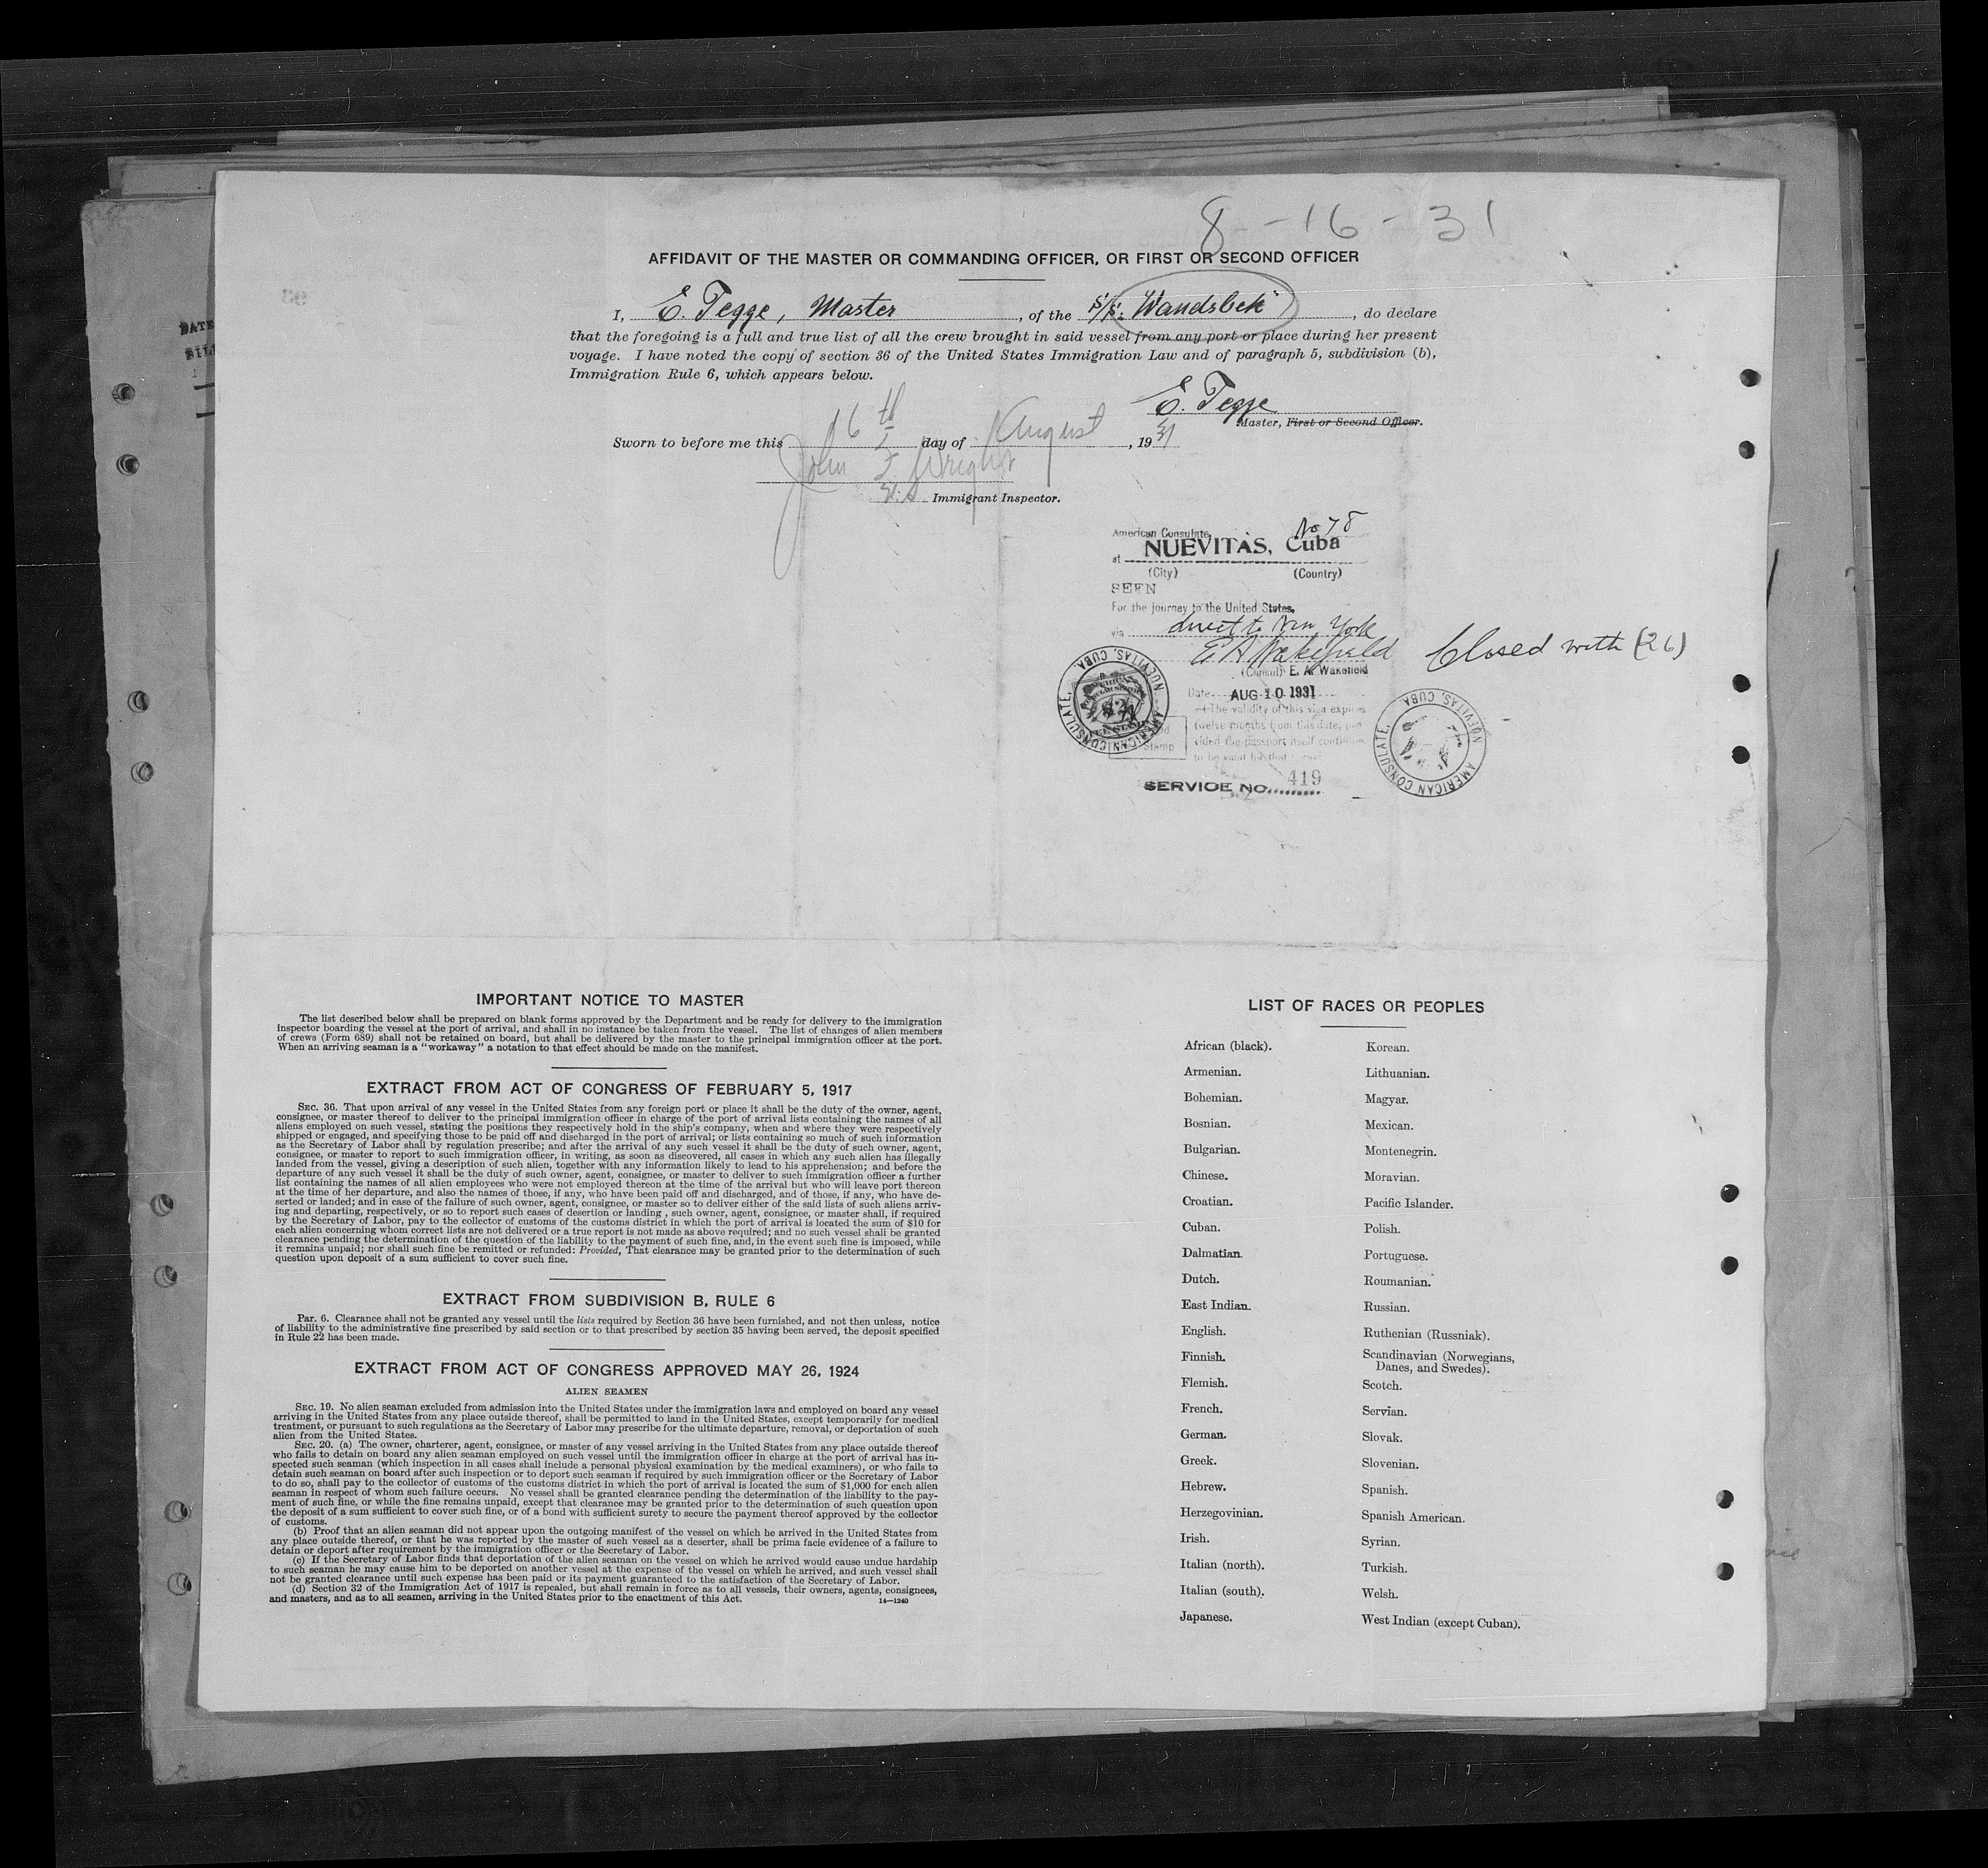 8-16-31
AFFIDAVIT OF THE MASTER OR COMMANDING OFFICER, OR FIRST OR SECOND OFFICER
I, E. Tegge, Master, of the S/S: "Wandsbek", do declare
that the foregoing is a full and true list of all the crew brought in said vessel from any port or place during her present
voyage. I have noted the copy of section 36 of the United States Immigration Law and of paragraph 5, subdivision (b),
Immigration Rule 6, which appears below.
E. Tegge
Master, First or Second Officer.
Sworn to before me this 16th day of August, 1931
John F. Wright
U.S. Immigrant Inspector.
No 78
American Consulate,
at NUEVITAS, Cuba
(City) (Country)
SEEN
For the journey to the United States,
via direct to New York
E A Wakefield
(Consul) E. A. Wakefield
Closed with (26)
Date AUG 10 1931
The validity of this visa expires
twelve months from this date, pro-
vided the passport itself continues
to be valid for that
Stamp
AMERICAN CONSULATE, NUEVITAS, CUBA.
AMERICAN CONSULATE, NUEVITAS, CUBA.
SERVICE NO. 419
IMPORTANT NOTICE TO MASTER
The list described below shall be prepared on blank forms approved by the Department and be ready for delivery to the immigration
inspector boarding the vessel at the port of arrival, and shall in no instance be taken from the vessel. The list of changes of alien members
of crews (Form 689) shall not be retained on board, but shall be delivered by the master to the principal immigration officer at the port.
When an arriving seaman is a "workaway" a notation to that effect should be made on the manifest.
EXTRACT FROM ACT OF CONGRESS OF FEBRUARY 5, 1917
SEC. 36. That upon arrival of any vessel in the United States from any foreign port or place it shall be the duty of the owner, agent,
consignee, or master thereof to deliver to the principal immigration officer in charge of the port of arrival lists containing the names of all
aliens employed on such vessel, stating the positions they respectively hold in the ship's company, when and where they were respectively
shipped or engaged, and specifying those to be paid off and discharged in the port of arrival; or lists containing so much of such information
as the Secretary of Labor shall by regulation prescribe; and after the arrival of any such vessel it shall be the duty of such owner, agent,
consignee, or master to report to such immigration officer, in writing, as soon as discovered, all cases in which any such alien has illegally
landed from the vessel, giving a description of such alien, together with any information likely to lead to his apprehension; and before the
departure of any such vessel it shall be the duty of such owner, agent, consignee, or master to deliver to such immigration officer a further
list containing the names of all alien employees who were not employed thereon at the time of the arrival but who will leave port thereon
at the time of her departure, and also the names of those, if any, who have been paid off and discharged, and of those, if any, who have de-
serted or landed; and in case of the failure of such owner, agent, consignee, or master so to deliver either of the said lists of such aliens arriv-
ing and departing, respectively, or so to report such cases of desertion or landing , such owner, agent, consignee, or master shall, if required
by the Secretary of Labor, pay to the collector of customs of the customs district in which the port of arrival is located the sum of $10 for
each alien concerning whom correct lists are not delivered or a true report is not made as above required; and no such vessel shall be granted
clearance pending the determination of the question of the liability to the payment of such fine, and, in the event such fine is imposed, while
it remains unpaid; nor shall such fine be remitted or refunded: Provided, That clearance may be granted prior to the determination of such
question upon deposit of a sum sufficient to cover such fine.
EXTRACT FROM SUBDIVISION B, RULE 6
Par. 6. Clearance shall not be granted any vessel until the lists required by Section 36 have been furnished, and not then unless, notice
of liability to the administrative fine prescribed by said section or to that prescribed by section 35 having been served, the deposit specified
in Rule 22 has been made.
EXTRACT FROM ACT OF CONGRESS APPROVED MAY 26, 1924
ALIEN SEAMEN
SEC. 19. No alien seaman excluded from admission into the United States under the immigration laws and employed on board any vessel
arriving in the United States from any place outside thereof, shall be permitted to land in the United States, except temporarily for medical
treatment, or pursuant to such regulations as the Secretary of Labor may prescribe for the ultimate departure, removal, or deportation of such
alien from the United States.
SEC. 20. (a) The owner, charterer, agent, consignee, or master of any vessel arriving in the United States from any place outside thereof
who fails to detain on board any alien seaman employed on such vessel until the immigration officer in charge at the port of arrival has in-
spected such seaman (which inspection in all cases shall include a personal physical examination by the medical examiners), or who fails to
detain such seaman on board after such inspection or to deport such seaman if required by such immigration officer or the Secretary of Labor
to do so, shall pay to the collector of customs of the customs district in which the port of arrival is located the sum of $1,000 for each alien
seaman in respect of whom such failure occurs. No vessel shall be granted clearance pending the determination of the liability to the pay-
ment of such fine, or while the fine remains unpaid, except that clearance may be granted prior to the determination of such question upon
the deposit of a sum sufficient to cover such fine, or of a bond with sufficient surety to secure the payment thereof approved by the collector
of customs.
(b) Proof that an alien seaman did not appear upon the outgoing manifest of the vessel on which he arrived in the United States from
any place outside thereof, or that he was reported by the master of such vessel as a deserter, shall be prima facie evidence of a failure to
detain or deport after requirement by the immigration officer or the Secretary of Labor.
(c) If the Secretary of Labor finds that deportation of the alien seaman on the vessel on which he arrived would cause undue hardship
to such seaman he may cause him to be deported on another vessel at the expense of the vessel on which he arrived, and such vessel shall
not be granted clearance until such expense has been paid or its payment guaranteed to the satisfaction of the Secretary of Labor.
(d) Section 32 of the Immigration Act of 1917 is repealed, but shall remain in force as to all vessels, their owners, agents, consignees,
and masters, and as to all seamen, arriving in the United States prior to the enactment of this Act.
14—1240
LIST OF RACES OR PEOPLES
African (black).
Armenian.
Bohemian.
Bosnian.
Bulgarian.
Chinese.
Croatian.
Cuban.
Dalmatian.
Dutch.
East Indian.
English.
Finnish.
Flemish.
French.
German.
Greek.
Hebrew.
Herzegovinian.
Irish.
Italian (north).
Italian (south).
Japanese.
Korean.
Lithuanian.
Magyar.
Mexican.
Montenegrin.
Moravian.
Pacific Islander.
Polish.
Portuguese.
Roumanian.
Russian.
Ruthenian (Russniak).
Scandinavian (Norwegians,
Danes, and Swedes).
Scotch.
Servian.
Slovak.
Slovenian.
Spanish.
Spanish American.
Syrian.
Turkish.
Welsh.
West Indian (except Cuban).